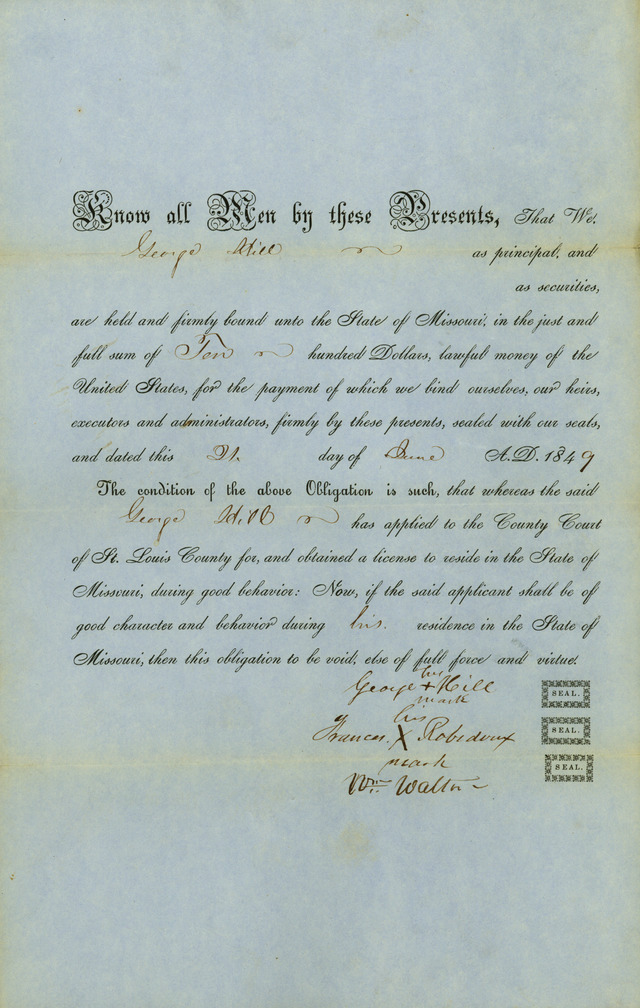 Know all Men by these Presents, That We,
George Hill as principal, and
as securities,
are held and firmly bound unto the State of Missouri, in the just and
full sum of Ten hundred Dollars, lawful money of the
United States, for the payment of which we bind ourselves, our heirs,
executors and administrators, firmly by these presents, sealed with our seals,
and dated this 21. day of June A.D. 1849
The condition of the above Obligation is such, that whereas the said
George Hill has applied to the County Court
of St. Louis County for, and obtained a license to reside in the State of
Missouri, during good behavior: Now, if the said applicant shall be of
good character and behavior during his. residence in the State of
Missouri, then this obligation to be void, else of full force and virtue.
his
George + Hill SEAL.
mark
his
Frances. X Robidoux SEAL.
mark
Wm Walton SEAL.